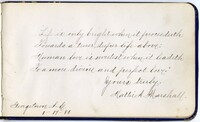 Life is only bright when it proceedeth
Towards a truer, deeper life above;
Human love is sweetest when it leadeth
To a more divine and perfect love.
Yours truly,
Hattie A. Marshall.